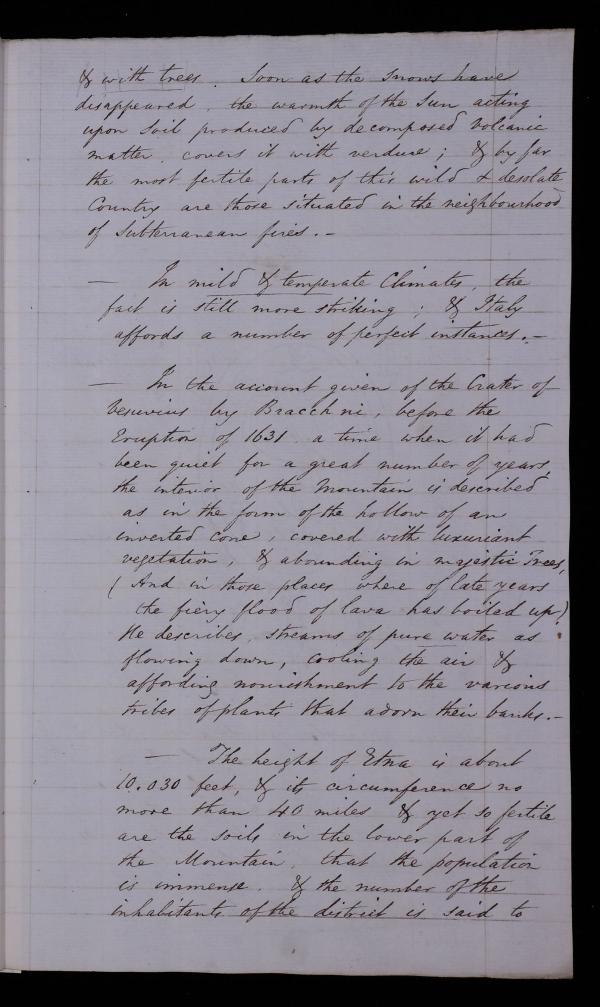 & with trees. Soon as the snows have
disappeared, the warmth of the Sun acting
upon Soil produced by decomposed Volcanic
matter, covers it with verdure; & by far
the most fertile parts of this wild & desolate
Country are those situated in the neighbourhood
of Subterranean fires. -
— In mild & temperate Climates, the
fact is still more striking; & Italy
affords a number of perfect instances. -
— In the account given of the Crater of
Vesuvius by Bracchini, before the
Eruption of 1631 a time when it had
been quiet for a great number of years,
the interior of the Mountain is described
as in the form of the hollow of an
inverted cone, covered with luxuriant
vegetation, & abounding in majestic Trees,
(And in those places where of late years
the fiery flood of lava has boiled up)
He describes, streams of pure water as
flowing down, cooling the air &
affording nourishment to the various
tribes of plants that adorn their banks. -
— The height of Etna is about
10.030 feet, & its circumference no
more than 40 miles & yet so fertile
are the soils in the lower part of
the Mountain, that the population
is immense. & the number of the
inhabitants of the district is said to